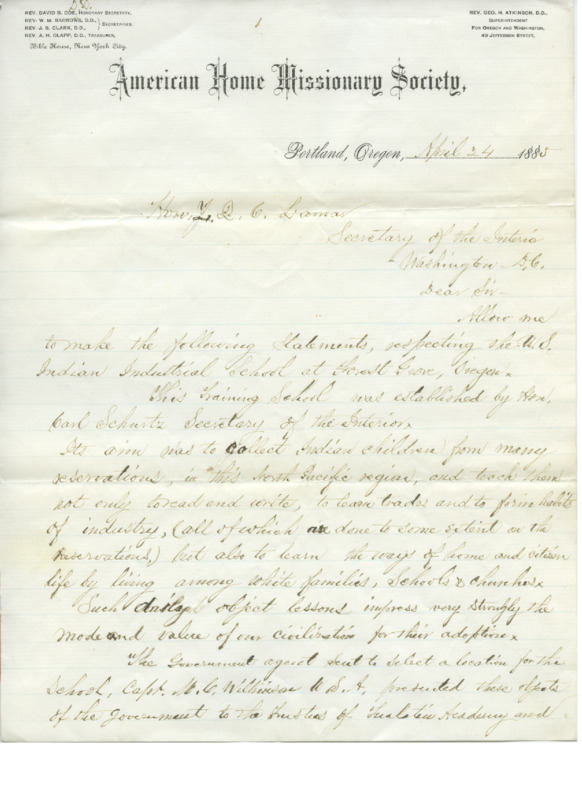 D.D.
REV. DAVID B. COE, HONORARY SECRETARY.
REV. W. M. BARROWS, D.D., } SECRETARIES.
REV. J. B. CLARK, D.D.,
REV. A. H. CLAPP, D.D., TREASURER,
Bible House, New York City.
1
REV. GEO. H. ATKINSON, D.D.,
SUPERINTENDENT
FOR OREGON AND WASHINGTON,
49 JEFFERSON STREET,
American Home Missionary Society,
Portland, Oregon, April 24 1885
Hon. L. Q. C. Lamar
Secretary of the Interio
Washington D.C.
Dear Sir—
Allow me
to make the following Statements, respecting the U.S.
Indian Industrial School at Forest Grove, Oregon.
This Training School was established by Hon.
Carl Schurtz Secretary of the Interior.
Its aim was to collect Indian children from many
reservations, in this North Pacific region, and teach them
not only to read and write, to learn trades and to form habits
of industry, (all of which are done to some extent on the
reservations,) but also to learn the ways of home and citizen
life by living among white families, Schools & churches.
Such daily object lessons impress very strongly the
mode and value of our civilization for their adoption.
The Government agent sent to select a location for the
School, Capt. M. C. Wilkinson U.S.A. presented these objects
of the government to the Trustees of Tualatin Academy and